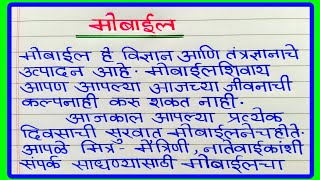 मोबाईल
मोबाईल हे विज्ञान आणि तंत्रज्ञानाचे
उत्पादन आहे. मोबाईलशिवाय
आपण आपल्या आजच्या जीवनाची
कल्पनाही करु शकत नाही.
आजकाल आपल्या प्रत्येक
दिवसाची सुरवात मोबाईलनेच होते.
आपले मित्र - मैत्रिणी, नातेवाईकांशी
संपर्क साधण्यासाठी मोबाईलचा